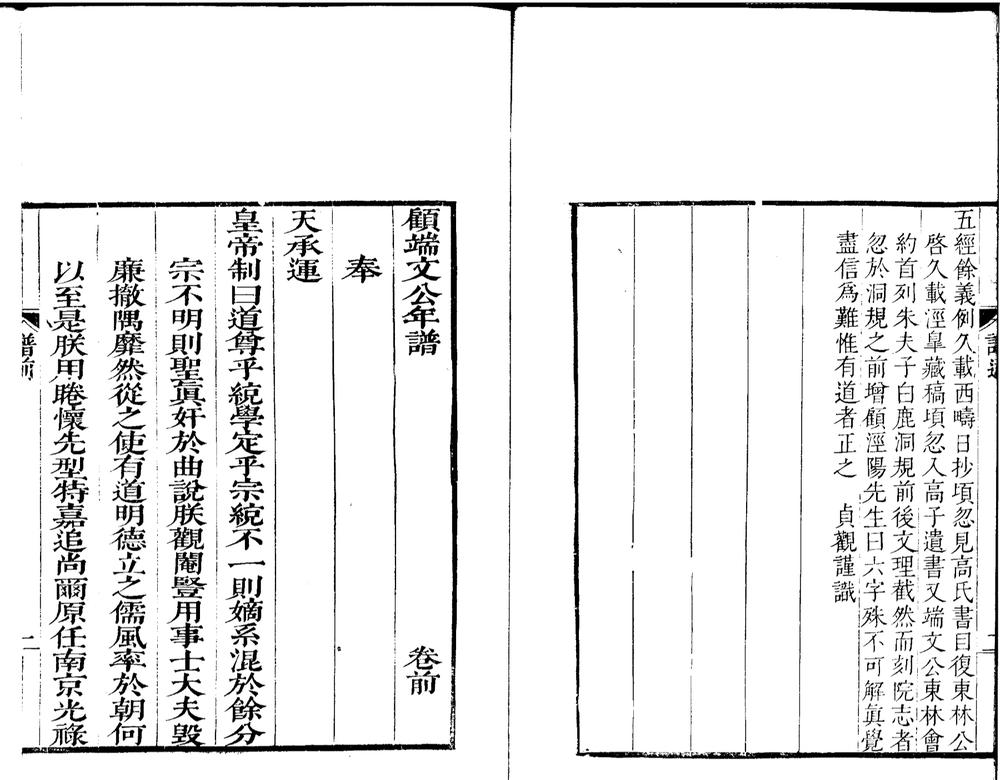 五經餘義例久載西疇日抄頃忽見高氏書目復東林公
啓久載涇臯藏稿頃忽入高子遺書又端文公東林會
約首列朱夫子白鹿洞規前後文理截然而刻院志者
忽於洞規之前增顧涇陽先生曰六字殊不可解眞覺
盡信爲難惟有道者正之　貞觀謹識
顧端文公年譜　卷前
奉
天承運
皇帝制曰道尊乎統學定乎宗統不一則嫡系混於餘分
宗不明則聖眞奸於曲說朕觀閹豎用事士大夫毀
廉撤隅靡然從之使有道明德立之儒風率於朝何
以至是朕用睠懷先型特嘉追尚爾原任南京光祿
譜前
二